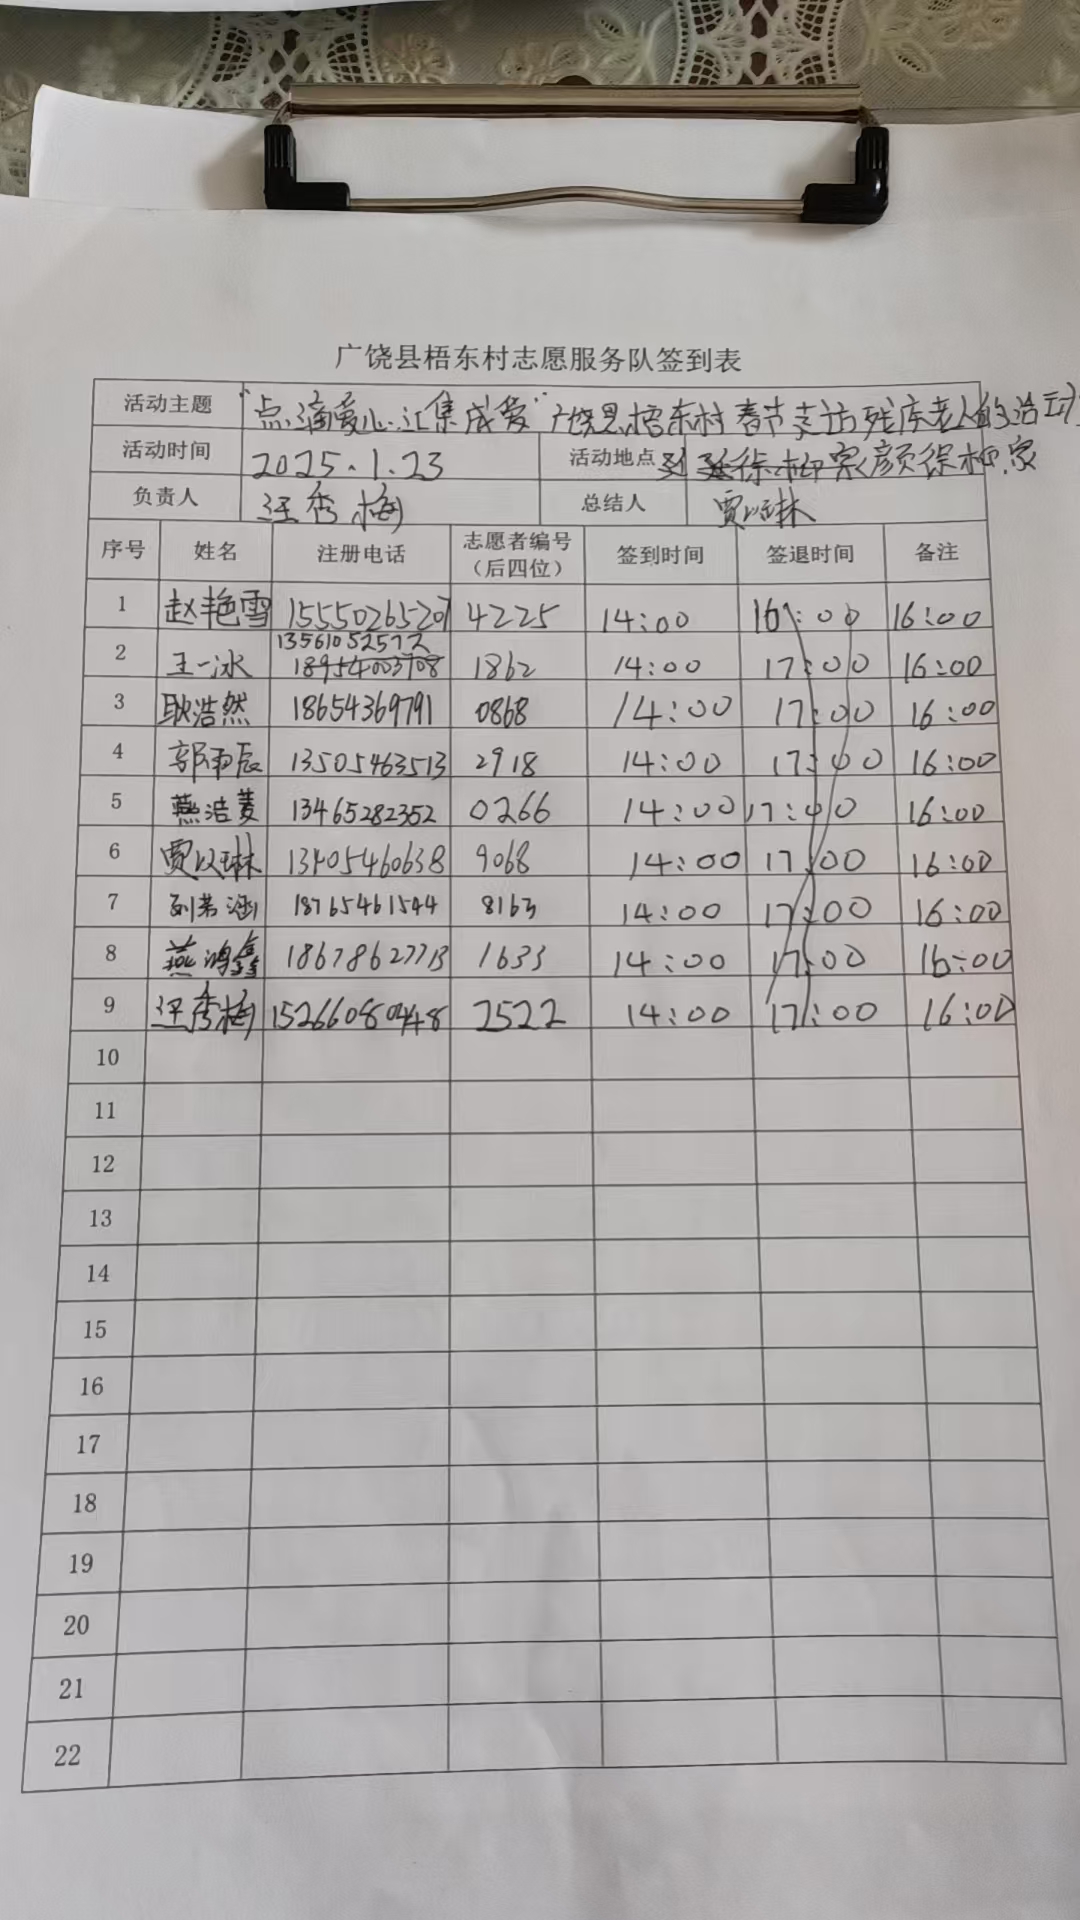 广饶县梧东村志愿服务队签到表
活动主题 "点滴爱心.汇集成爱"广饶县梧东村春节走访残疾老人的活动
活动时间 2025.1.23 活动地点 徐柳家颜徐柳家
负责人 汪秀梅 总结人 贾以琳
序号 姓名 注册电话 志愿者编号（后四位） 签到时间 签退时间 备注
1 赵艳雪 15550265207 4225 14:00 16:00 16:00
13561052572
2 王一冰 18954003708 1862 14:00 17:00 16:00
3 耿浩然 18654369791 0868 14:00 17:00 16:00
4 郭雨辰 13505463513 2918 14:00 17:00 16:00
5 燕浩菱 13465282352 0266 14:00 17:00 16:00
6 贾以琳 13405460638 9068 14:00 17:00 16:00
7 刘若涵 18765461544 8163 14:00 17:00 16:00
8 燕鸿鑫 18678627713 1633 14:00 17:00 16:00
9 汪秀梅 15266080448 2522 14:00 17:00 16:00
10
11
12
13
14
15
16
17
18
19
20
21
22